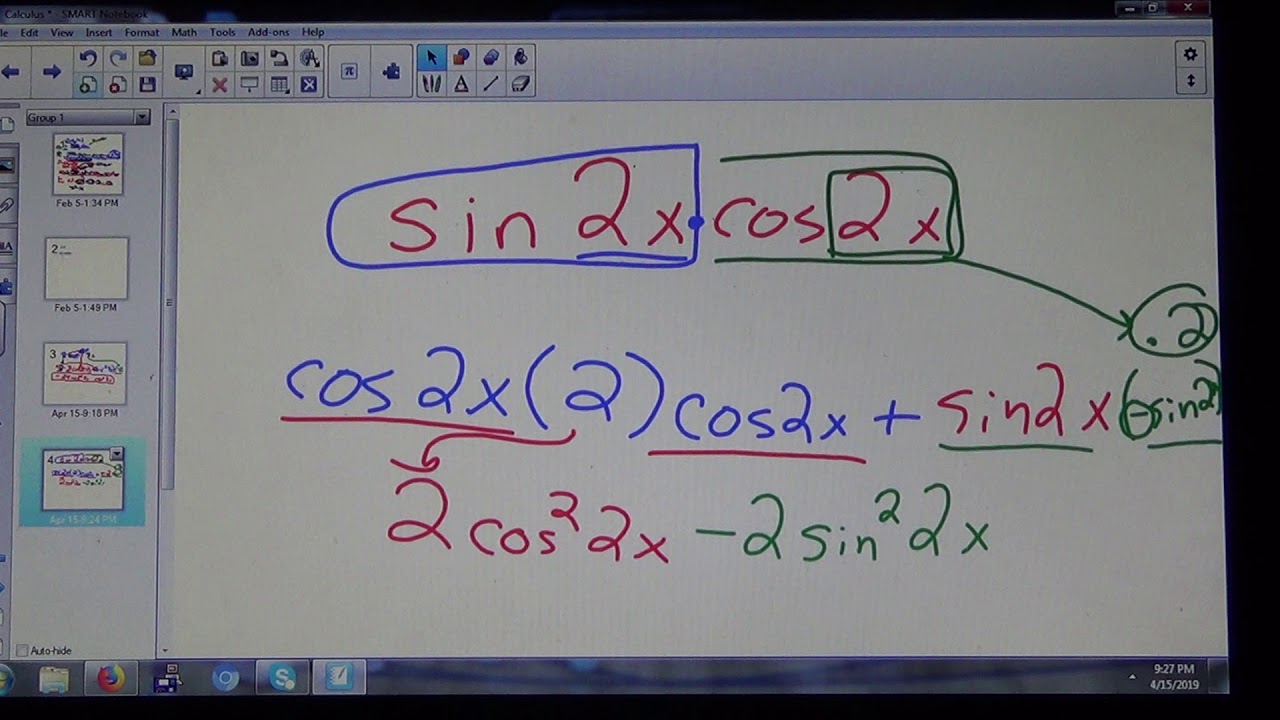 Calculus * - SMART Notebook
Edit View Insert Format Math Tools Add-ons Help
Group 1
Feb 5-1:34 PM
2
Feb 5-1:49 PM
3
Apr 15-9:18 PM
4
Apr 15-9:24 PM
Auto-hide
sin 2x • cos 2x
.2
cos 2x (2) cos 2x + sin 2x (-sin 2
2 cos² 2x - 2 sin² 2x
9:27 PM
4/15/2019